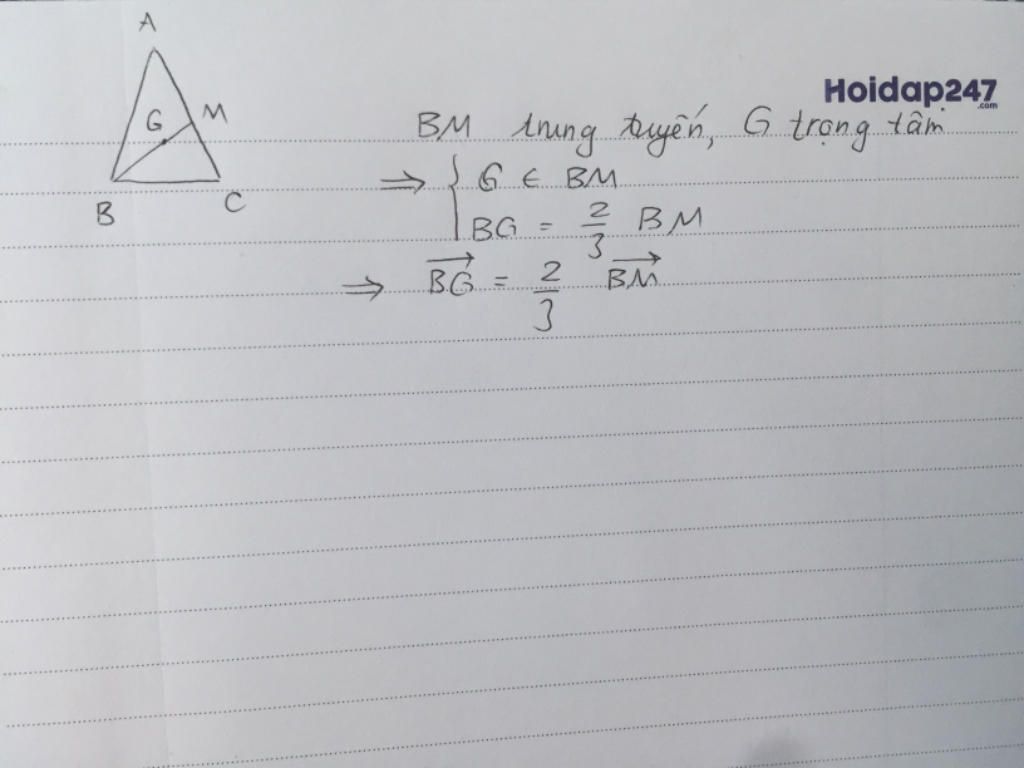 A
G
M
B
C
Hoidap247
.com
BM trung tuyến, G trọng tâm
⇒ { G ∈ BM
BG = 2/3 BM
⇒ \overrightarrow{BG} = 2/3 \overrightarrow{BM}